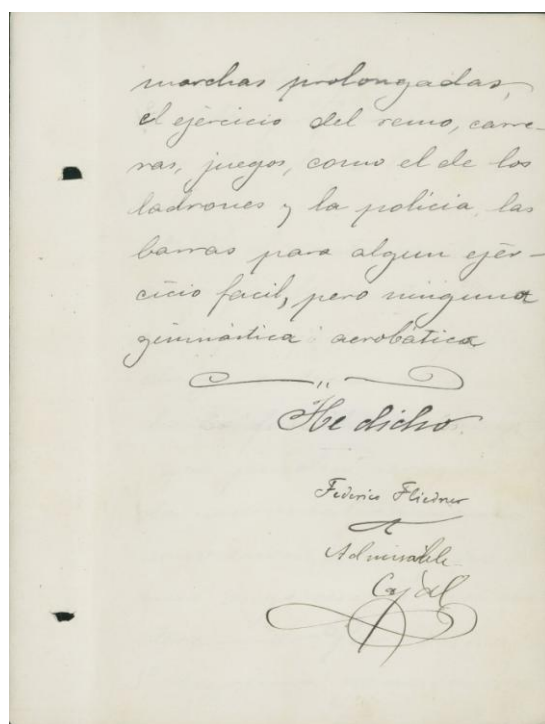 marchas prolongadas,
el ejercicio del remo, carre-
ras, juegos, como el de los
ladrones y la policia, las
barras para algun ejer-
cicio facil, pero ninguna
gimnástica acrobática
He dicho.
Federico Fliedner
Admisible
Cajal